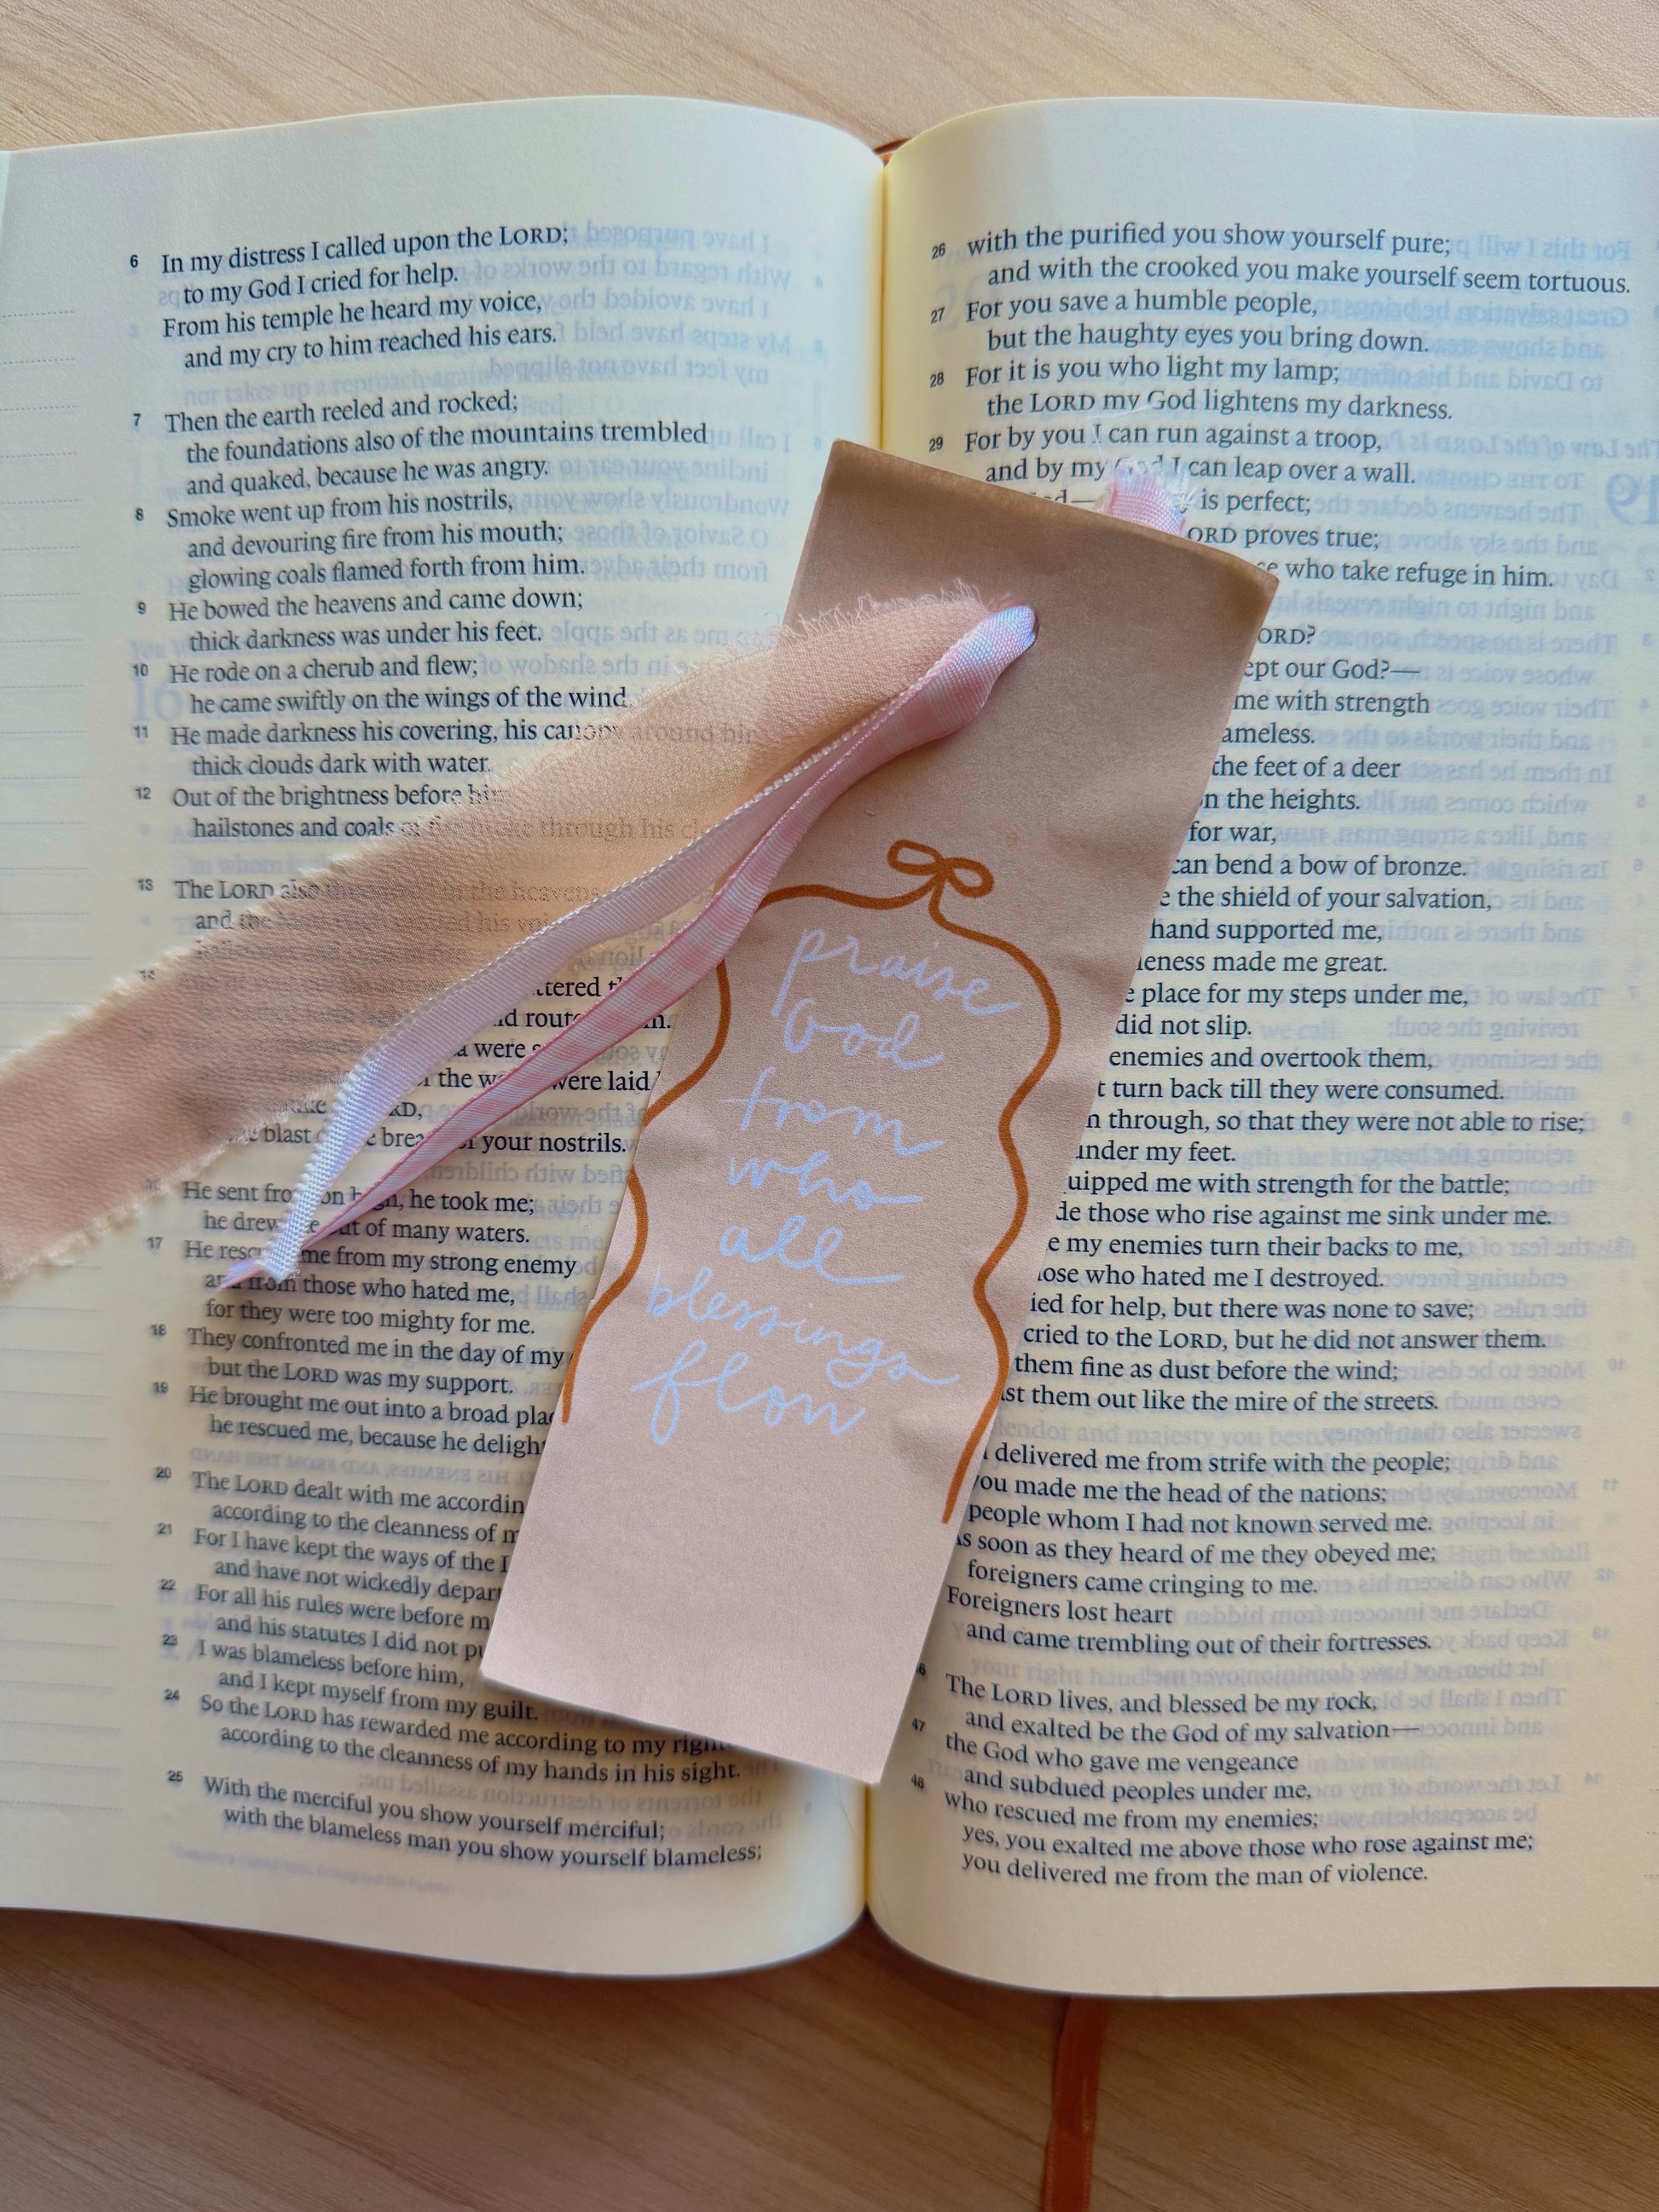 6 In my distress I called upon the LORD;
to my God I cried for help.
From his temple he heard my voice,
and my cry to him reached his ears.
7 Then the earth reeled and rocked;
the foundations also of the mountains trembled
and quaked, because he was angry.
8 Smoke went up from his nostrils,
and devouring fire from his mouth;
glowing coals flamed forth from him.
9 He bowed the heavens and came down;
thick darkness was under his feet.
10 He rode on a cherub and flew;
he came swiftly on the wings of the wind.
11 He made darkness his covering, his canopy around him,
thick clouds dark with water.
12 Out of the brightness before him
hailstones and coals of fire broke through his
13 The LORD also thundered in the heavens
and the
the were laid
your nostrils.
He sent from on high, he took me;
he drew me out of many waters.
17 He rescued me from my strong enemy
and from those who hated me,
for they were too mighty for me.
18 They confronted me in the day of my
but the LORD was my support.
19 He brought me out into a broad
he rescued me, because he
20 The LORD dealt with me
according to the cleanness of
21 For I have kept the ways of the
and have not wickedly
22 For all his rules were before
and his statutes I did not
23 I was blameless before him,
and I kept myself from my guilt.
24 So the LORD has rewarded me according to my
according to the cleanness of my hands in his sight.
25 With the merciful you show yourself merciful;
with the blameless man you show yourself blameless;
praise
God
from
who
all
blessings
flow
26 with the purified you show yourself pure;
and with the crooked you make yourself seem tortuous.
27 For you save a humble people,
but the haughty eyes you bring down.
28 For it is you who light my lamp;
the LORD my God lightens my darkness.
29 For by you I can run against a troop,
and by my God I can leap over a wall.
is perfect;
proves true;
who take refuge in him.
our God?—
me with strength
the feet of a deer
on the heights.
for war,
can bend a bow of bronze.
the shield of your salvation,
hand supported me,
made me great.
place for my steps under me,
did not slip.
enemies and overtook them,
turn back till they were consumed.
through, so that they were not able to rise;
under my feet.
me with strength for the battle;
those who rise against me sink under me.
my enemies turn their backs to me,
who hated me I destroyed.
for help, but there was none to save;
cried to the LORD, but he did not answer them.
them fine as dust before the wind;
them out like the mire of the streets.
delivered me from strife with the people;
you made me the head of the nations;
people whom I had not known served me.
As soon as they heard of me they obeyed me;
foreigners came cringing to me.
Foreigners lost heart
and came trembling out of their fortresses.
The LORD lives, and blessed be my rock,
and exalted be the God of my salvation—
47 the God who gave me vengeance
and subdued peoples under me,
48 who rescued me from my enemies;
yes, you exalted me above those who rose against me;
you delivered me from the man of violence.